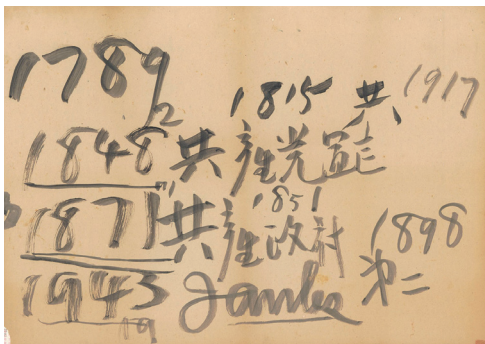 1789
1815 共 1917
1848 共産党宣言
1851
1871 共産政府
1898
1943
第二